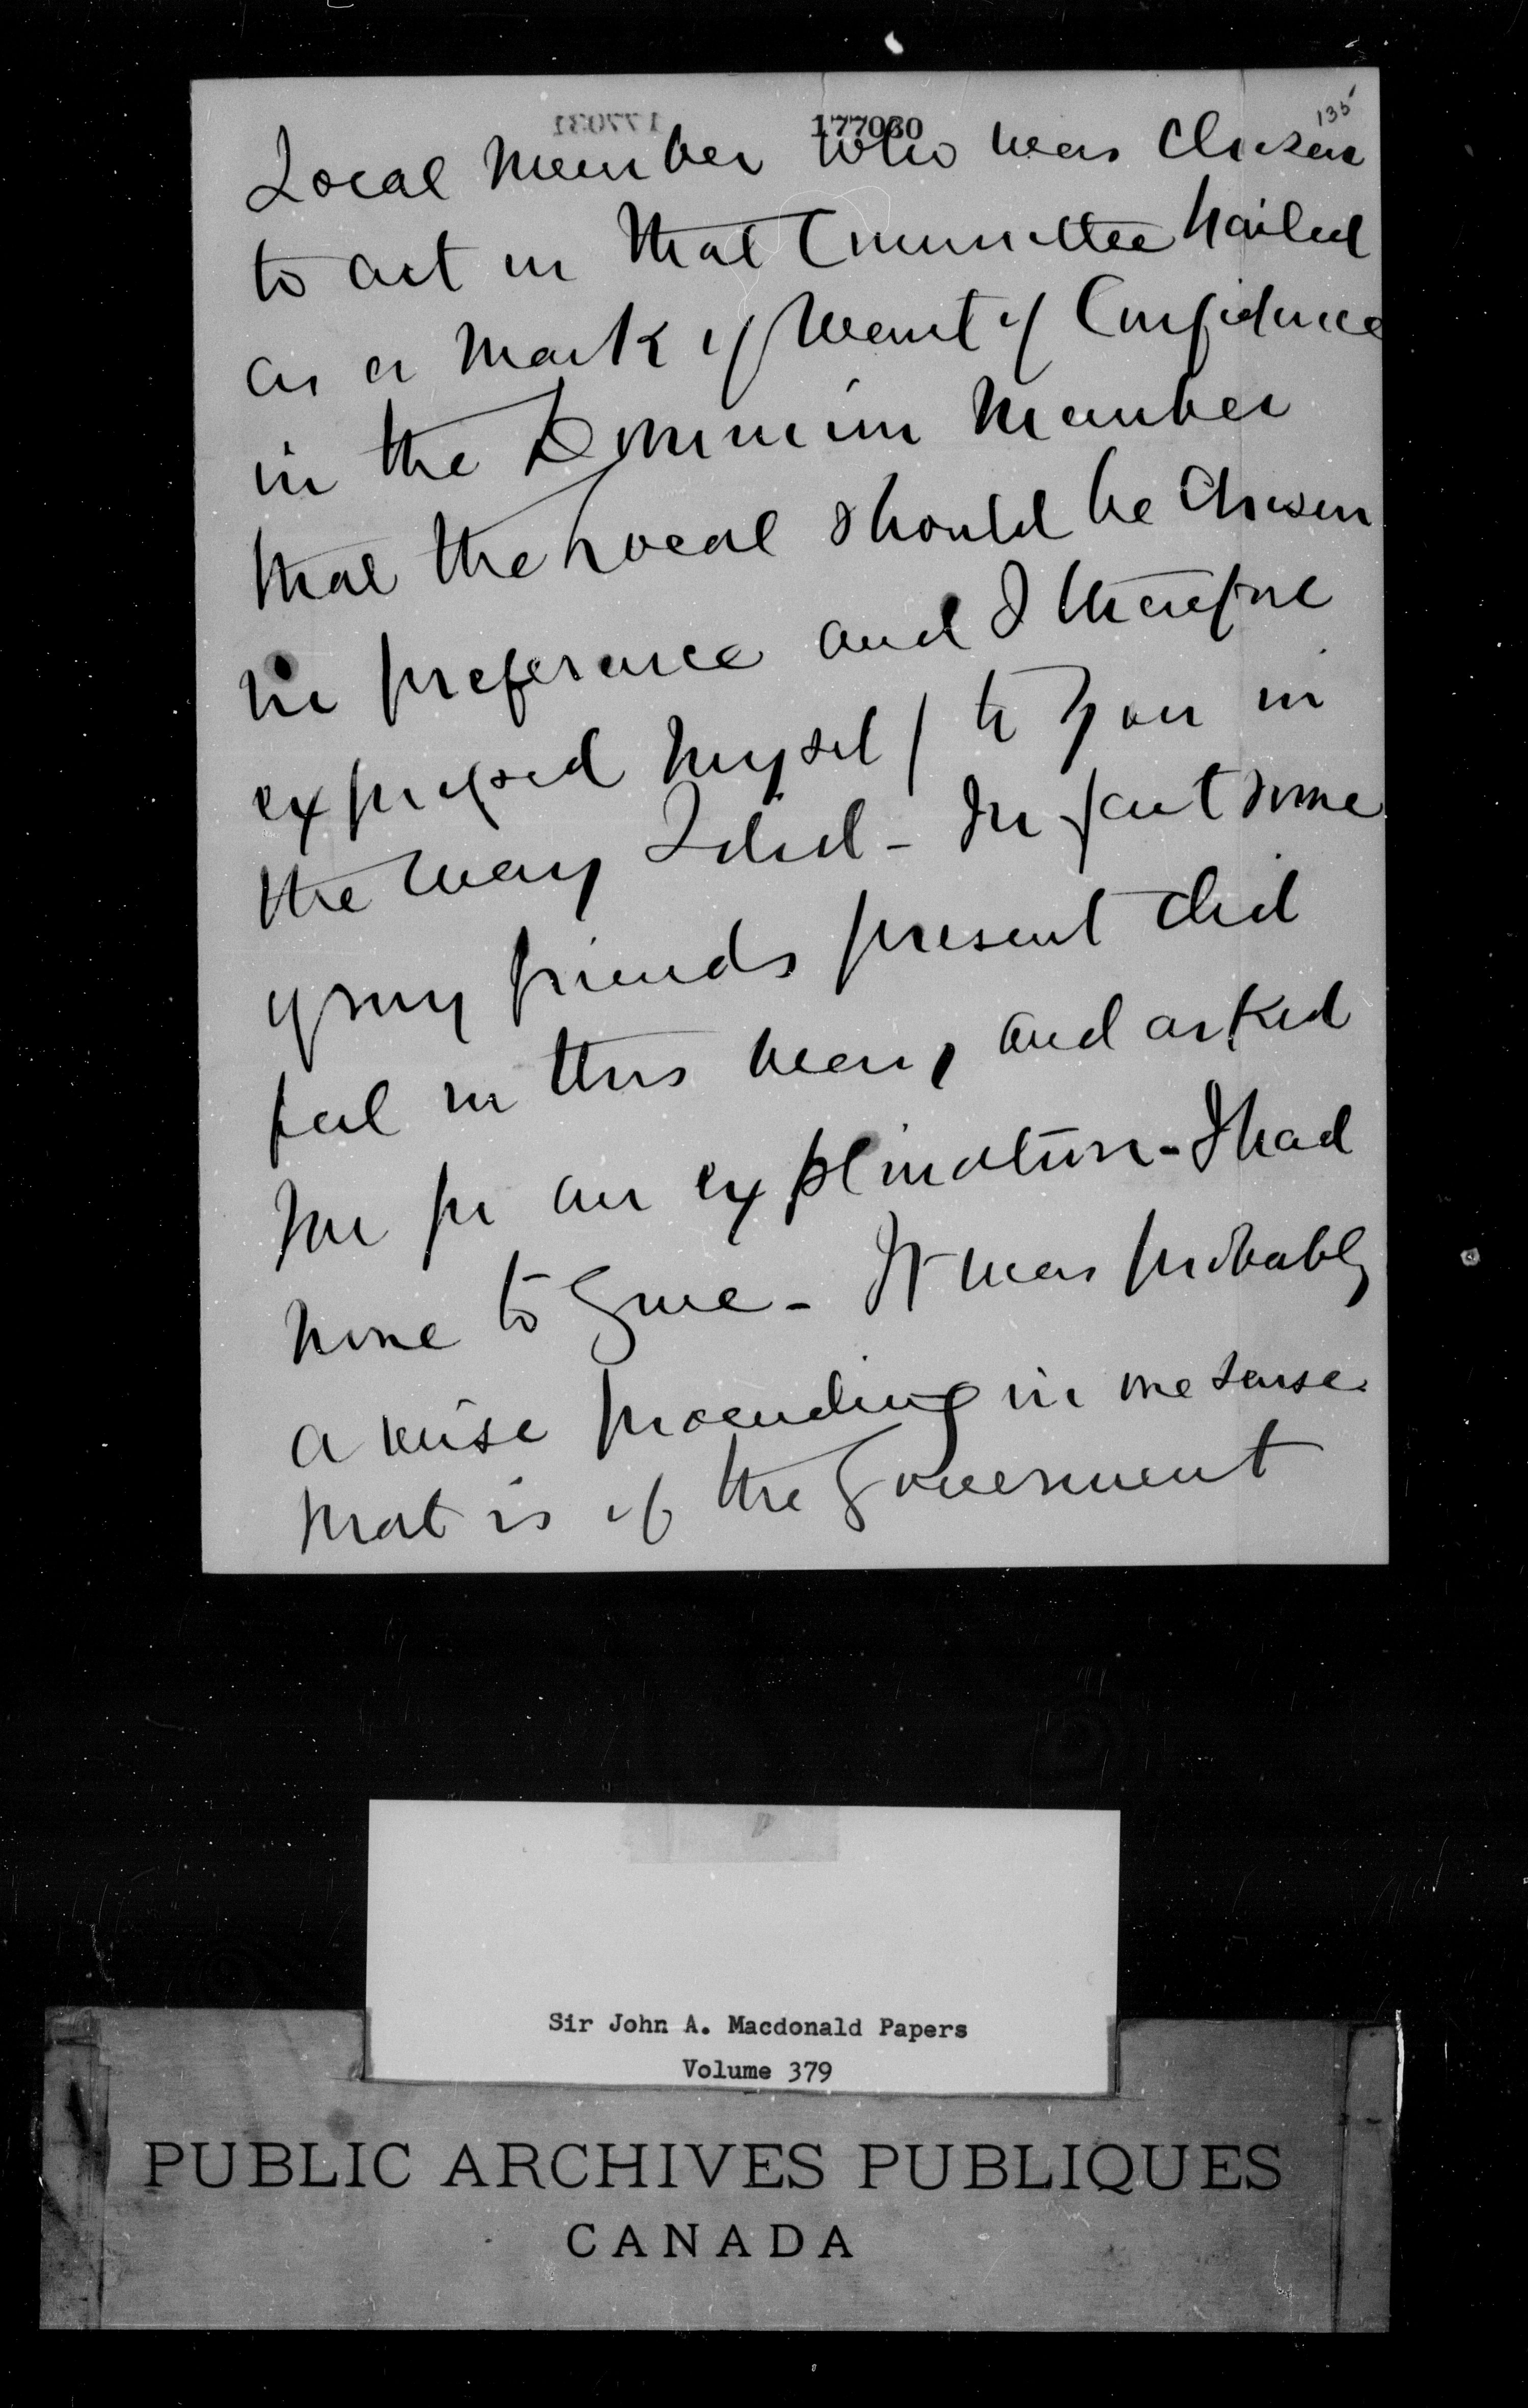 177031
177030
135
Local Member who was chosen
to act in that Committee hailed
as a mark of want of Confidence
in the Dominion Member
that the Local should be chosen
in preference and I therefore
expressed myself to you in
the way I did - In fact some
of my friends present did
feel in this way, and asked
me for an explination - I had
none to give - It was probably
a wise proceeding in one sense
that is if the Government
Sir John A. Macdonald Papers
Volume 379
PUBLIC ARCHIVES PUBLIQUES
CANADA